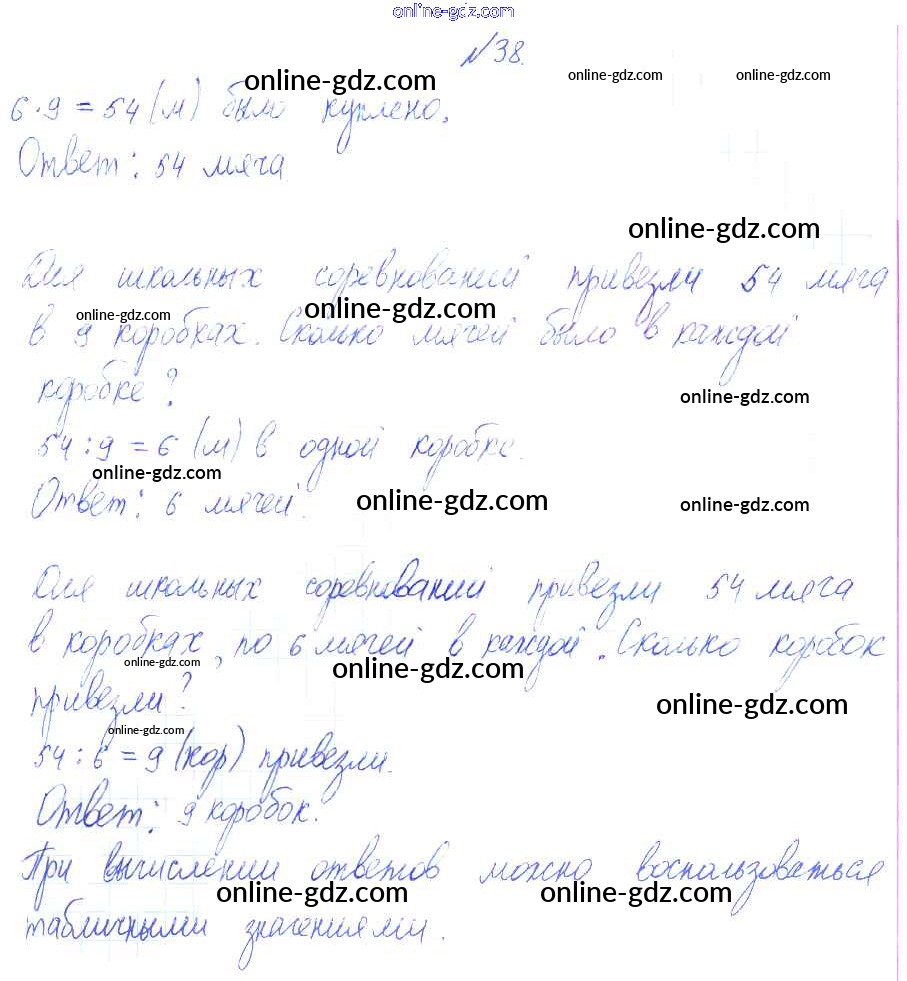 online-gdz.com
№38.
online-gdz.com online-gdz.com online-gdz.com
6·9=54(м) было куплено.
Ответ: 54 мяча
online-gdz.com
Для школьных соревнований привезли 54 мяча
online-gdz.com online-gdz.com
в 9 коробках. Сколько мячей было в каждой
коробке?
online-gdz.com
54:9=6 (м) в одной коробке.
online-gdz.com
Ответ: 6 мячей.
online-gdz.com online-gdz.com
Для школьных соревнований привезли 54 мяча
в коробках, по 6 мячей в каждой. Сколько коробок
online-gdz.com online-gdz.com
привезли?
online-gdz.com
online-gdz.com
54:6=9(кор) привезли.
Ответ: 9 коробок.
При вычислении ответов можно воспользоваться
online-gdz.com online-gdz.com
табличными значениями.